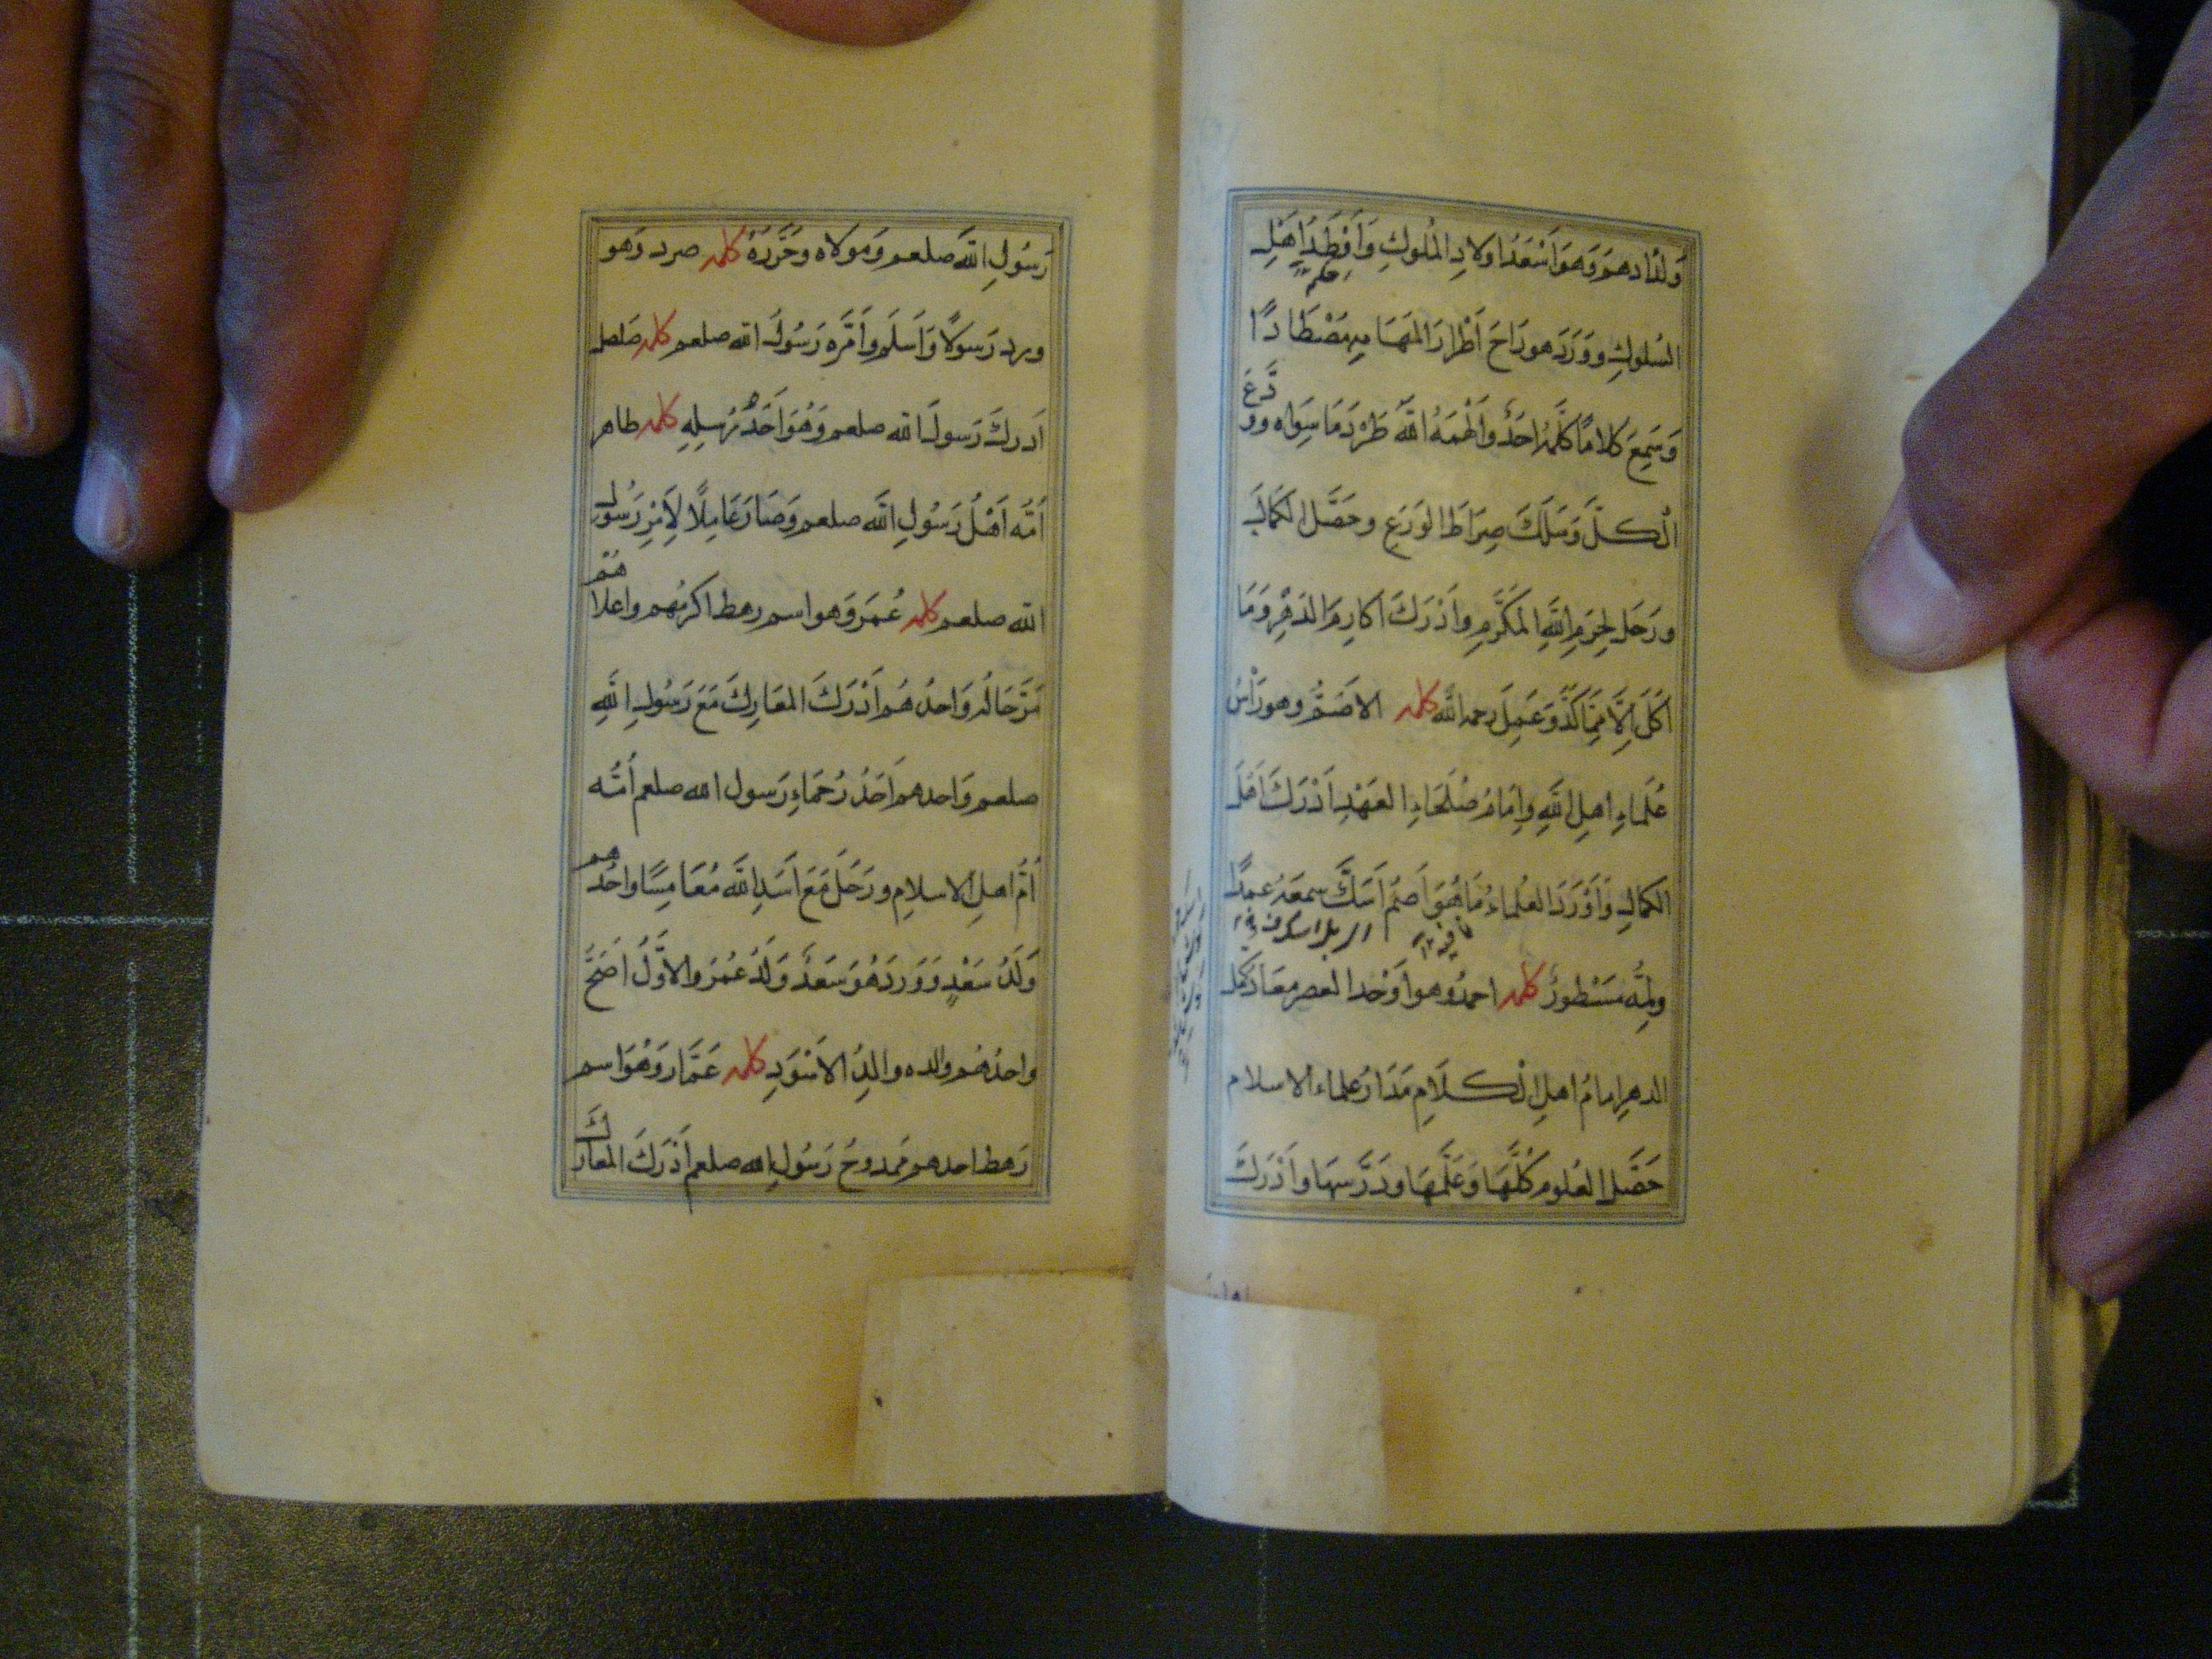 وَلَدَادَهم وَهوَ أَسْعَدُ اولادِ المُلوكِ وَأَوْطَدُ اَهْلِ
حكم
السُلوكِ ووَرَدَ هو رَاحَ أَطْرارَ المَهَامِهِ مُصْطَادًا
وَسَمِعَ كلامًا كَلَّمَهُ احَدٌ وأَلْهَمَهُ اللّٰهُ طَرْدَ مَا سِوَاه وودَّعَ
الْكلَّ وَسَلَكَ صِرَاطَ الوَرَعِ وحَصَّلَ الكَمَالَ
ورَحَلَ لِحَرَمِ اللّٰهِ المُكَرَّمِ وأَدْرَكَ اكارِمَ الدَهْرِ وَمَا
اكَلَ إِلَّا مِمَّا كَدَّ وَعَمِلَ رحمه اللّٰه كلمه الاصَمُّ وهو رَأْسُ
عُلَمَاءِ اهلِ اللّٰهِ وإمَامُ صُلَحَاءِ العَهْدِ ادْرَكَ اَهْلَ
الكمالِ وَأَوْرَدَ العُلماءُ مَا هُوَ اصَمُّ أَسَكَّ سمعَهُ عمدًا
ولِمُّه مَسْطورٌ كلمه احمدُ وهو أَوْحَدُ العصرِ معَادُ كمل
الدهرِ امامُ اهلِ الْكلَامِ مَدَارُ علماء الاسلام
حَصَّلَ العُلومَ كُلَّهَا وَعَلَّمَهَا ودَرَّسَهَا وأَدْرَكَ
رَسُولِ اللّٰهِ صلعم وَمولاه وحَرَّرَهُ كلمه صرد وَهو
ورد رَسولًا وَاَسلَم وأَمَّرَه رَسُولُ الله صلعم كلمه صَلصل
اَدركَ رَسولَ الله صلعم وَهُوَ أَحَدُ رُسِلِهِ كلمه طاهر
اُمّه اَهْلُ رَسُولِ اللّٰه صلعم وَصَارَ عَامِلًا لِأَمْرِ رَسُولِ
الله صلعم كلمه عُمَر وَهو اسم رهط اكرمُهم واعلاهُمْ
مَرَّ حَالُه وَاحدُهُم اَدْرَكَ المعَارِكَ مَعَ رَسُولِ اللّٰهِ
صلعم وَاحدهم اَحَدُ رُحَمَاءِ رَسول الله صلعم اُمُّه
اُمُّ اهلِ الاسلامِ ورَحَلَ مَعَ اَسَدِ اللّٰه مُعَامِسًا واحُدهم
وَلَدُ سَعْدٍ وَوَردَ هُوَ سَعدٌ وَلَدُ عُمَر والاوَّلُ اصَحُّ
واحدُهُم والده والِدُ الاَسْوَدِ كلمه عَمَّار وَهُوَ اسم
رَهط احدهم مَمدوحُ رَسُولِ الله صلعم اَدْرَكَ المعَارِكَ